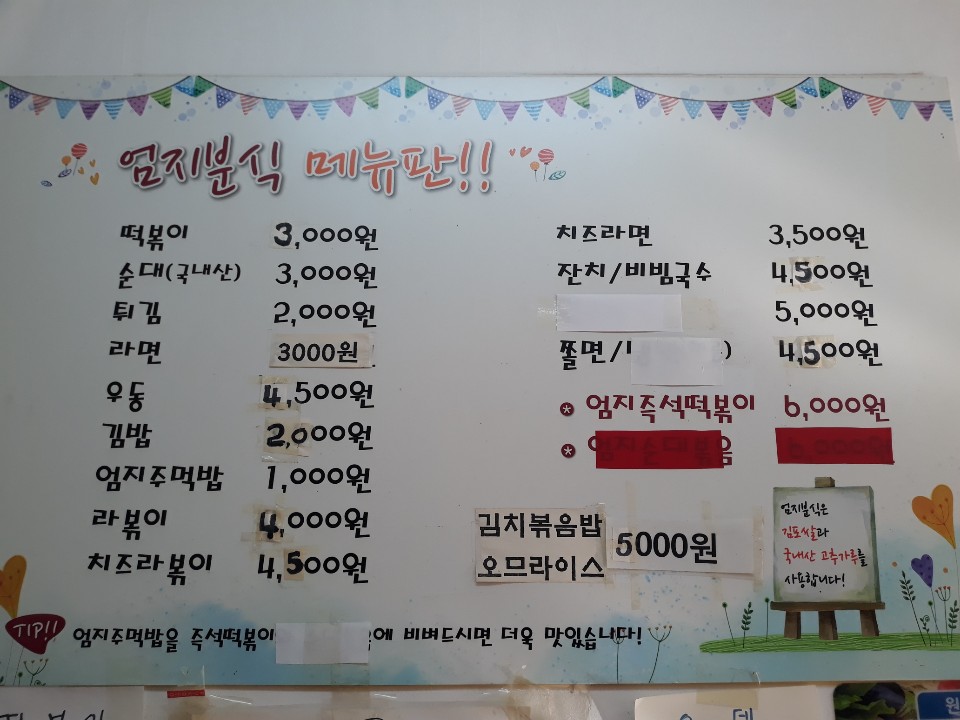 엄지분식 메뉴판!!
떡볶이 3,000원
순대(국내산) 3,000원
튀김 2,000원
라면 3000원
우동 4,500원
김밥 2,000원
엄지주먹밥 1,000원
라볶이 4,000원
치즈라볶이 4,500원
치즈라면 3,500원
잔치/비빔국수 4,500원
5,000원
쫄면/ ) 4,500원
엄지즉석떡볶이 6,000원
김치볶음밥
오므라이스
5000원
엄지분식은
김포쌀과
국내산 고추가루를
사용합니다!
TIP!! 엄지주먹밥을 즉석떡볶이 에 비벼드시면 더욱 맛있습니다!